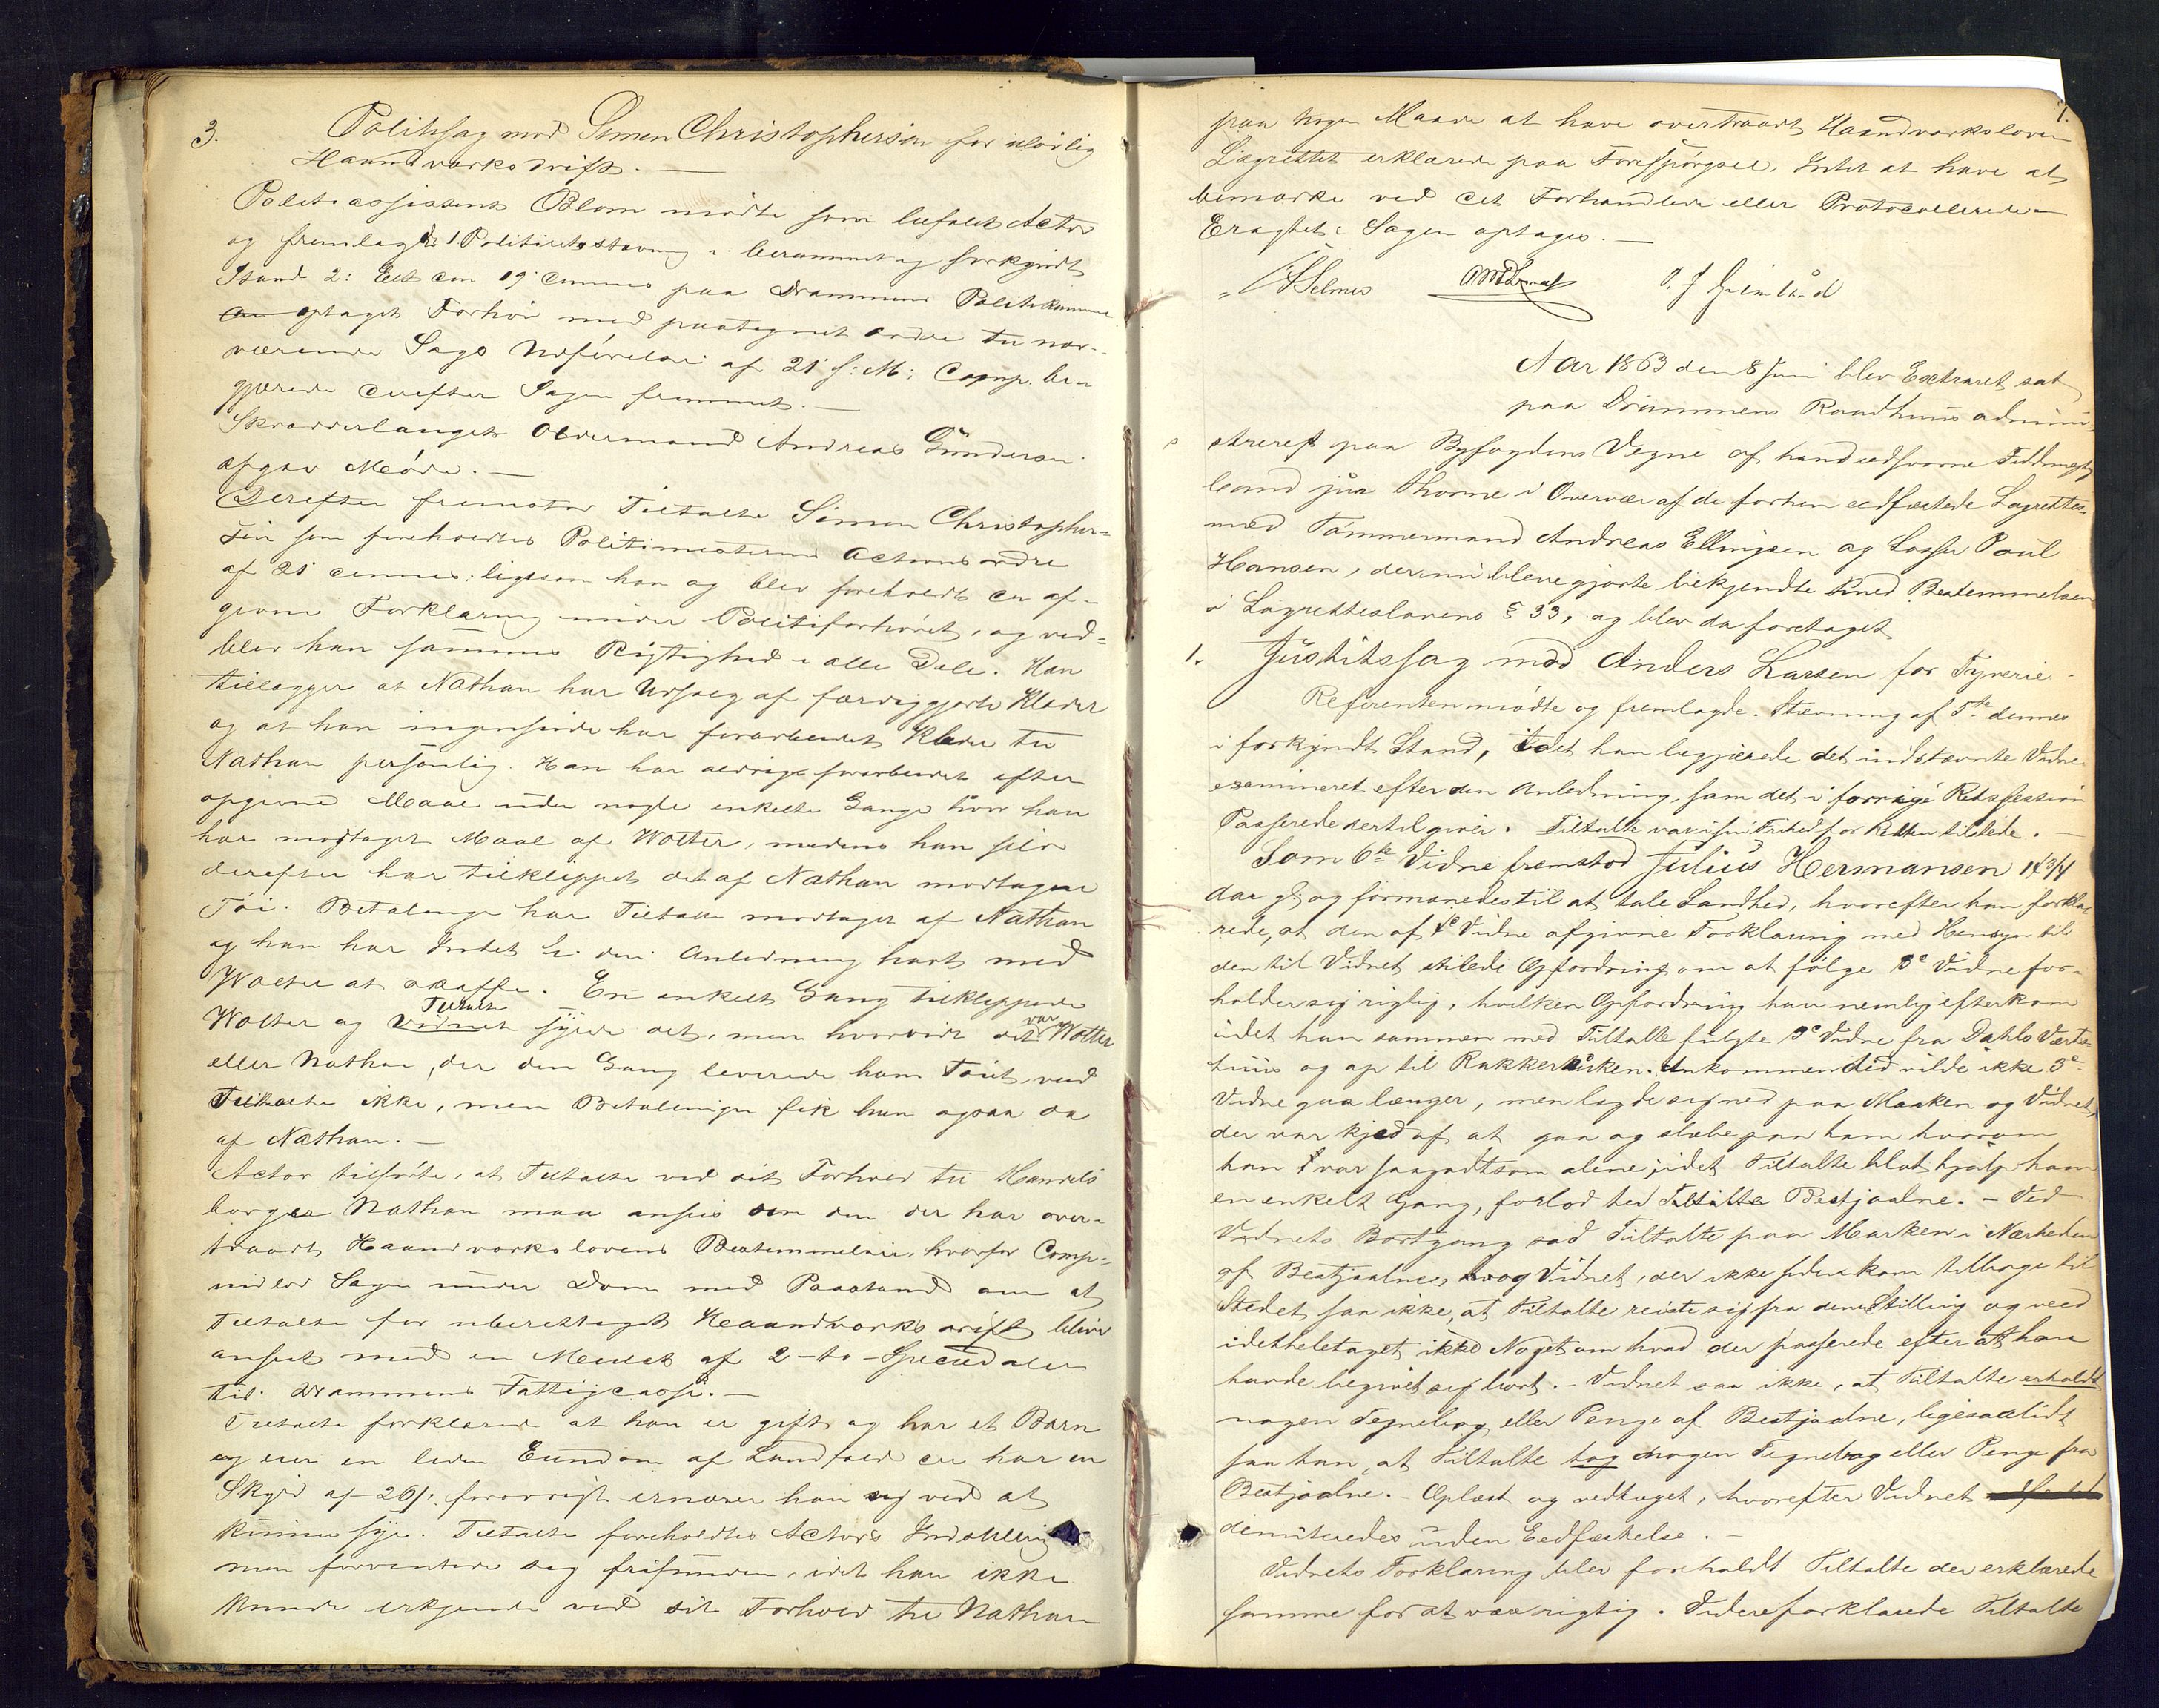 3.
Politisag mod Simen Christophersen for ulovlig
Haandværksdrift. —
Politiassistent Blom mødte som befalet Actor
og fremlagde 1. Politiretsstævning i berammet og forkyndt
Stand 2: Et den 19 dennes paa Drammens Politikammer
optaget Forhør med paategnet Ordre til nær-
værende Sags Udførelse af 21 s: M: Comp. be-
gjærede derefter Sagen fremmet. —
Skrædderlaugets Oldermand Andreas Gundersen
afgav Møde. —
Derefter fremstod Tiltalte Simen Christopher-
sen som foreholdtes Politimesterens Actionsordre
af 21 dennes: ligesom han og blev foreholdt en af-
given Forklaring under Politiforhøret, og ved-
blev han sammes Rigtighed i alle Dele. Han
tillægger at Nathan har Udsalg af færdiggjorte Klæder
og at han ingensinde har forarbeidet Klæder til
Nathan personlig. Han har aldrig forarbeidet efter
opgivne Maal uden nogle enkelte Gange hvor han
har modtaget Maal af Wolter, medens han selv
derefter har tilklippet det af Nathan modtagne
Tøi. Betalingen har Tiltalte modtaget af Nathan
og han har Intet i den Anledning havt med
Wolter at skaffe. En enkelt Gang tilklippede
Wolter og Vidnet Tiltalte syede det, men hvorvidt det var Wolter
eller Nathan, der den Gang leverede ham Tøiet, veed
Tiltalte ikke, men Betalingen fik han ogsaa da
af Nathan. —
Actor tilførte, at Tiltalte ved sit Forhold til Handels
borger Nathan maa ansees som den der har over-
traadt Haandværkslovens Bestemmelser, hvorfor Comp-
nedlod Sagen under Dom med Paastand om at
Tiltalte for uberettiget Haandværksdrift bliver
anseet med en Mulct af 2 - to - Speciedaler
til Drammens Fattigcasse. —
Tiltalte forklarede at han er gift og har et Barn
og eier en liden Eiendom af Landfald der har en
Skyld af 26/. forøvrigt ernærer han sig ved at
kunne sye. Tiltalte foreholdtes Actors Indstilling
men forventede sig frifunden, idet han ikke
kunde erkjende ved sit Forhold til Nathan
7.
paa nogen Maade at have overtraadt Haandværksloven
Lagrettet erklærede paa Forespørgsel, Intet at have at
bemærke ved det Forhandlede eller Protocollerede —
Eragtet: Sagen optages. —
Selmer
Aar 1863 den 8 Juni blev Extraret sat
paa Drammens Raadhuus admini-
streret paa Byfogdens Vegne af hans edsvorne Fuldmægtig
cand jur Thorne i Overvær af de forhen edfæstede Lagrettes-
mænd Tømmermand Andreas Ellingsen og Loser Poul
Hansen, der nu bleve gjorte bekjendte med Bestemmelsen
i Lagretteslovens § 33, og blev da foretaget
1. Justitssag mod Anders Larsen for Tyverie.
Referenten mødte og fremlagde. Stævning af 5te dennes
i forkyndt Stand, idet han begjærede det indstævnte Vidne
examineret efter den Anledning, som det i forrige Retssession
Passerede dertil giver. Tiltalte var i sin Frihed for Retten tilstede. —
Som 6te Vidne fremstod Julius Hermansen 14 3/4
Aar gl. og formanedes til at tale Sandhed, hvorefter han forkla-
rede, at den af 4e Vidne afgivne Forklaring med Hensyn til
den til Vidnet stilede Opfordring om at følge 3e Vidne for-
holder sig rigtig, hvilken Opfordring han nemlig efterkom
idet han sammen med Tiltalte fulgte 3e Vidne fra Dahls Værts-
huus og op til Rakkerkirken. Ankommen did vilde ikke 3e
Vidne gaa længer, men lagde sig ned paa Marken og Vidnet,
der var kjed af at gaa og slæbe paa ham hvorom
han var saagodtsom alene, idet Tiltalte blot hjalp ham
en enkelt Gang, forlod ted Tiltalte Bestjaalne. — Ved
Vidnets Bortgang sad Tiltalte paa Marken i Nærheden
af Bestjaalne, og Vidnet, der ikke siden kom tilbage til
Stedet saa ikke, at Tiltalte reiste sig fra denne Stilling og veed
idetheletaget ikke Noget om hvad der passerede efter at han
havde begivet sig bort. — Vidnet saa ikke, at Tiltalte erholdt
nogen Tegnebog eller Penge af Bestjaalne, ligesaalidt
saa han, at Tiltalte tog nogen Tegnebog eller Penge fra
Bestjaalne. — Oplæst og vedtaget, hvorefter Vidnet
demitteredes uden Eedfæstelse. —
Vidnets Forklaring blev foreholdt Tiltalte der erklærede
samme for at være rigtig. Videre forklarede Tiltalte